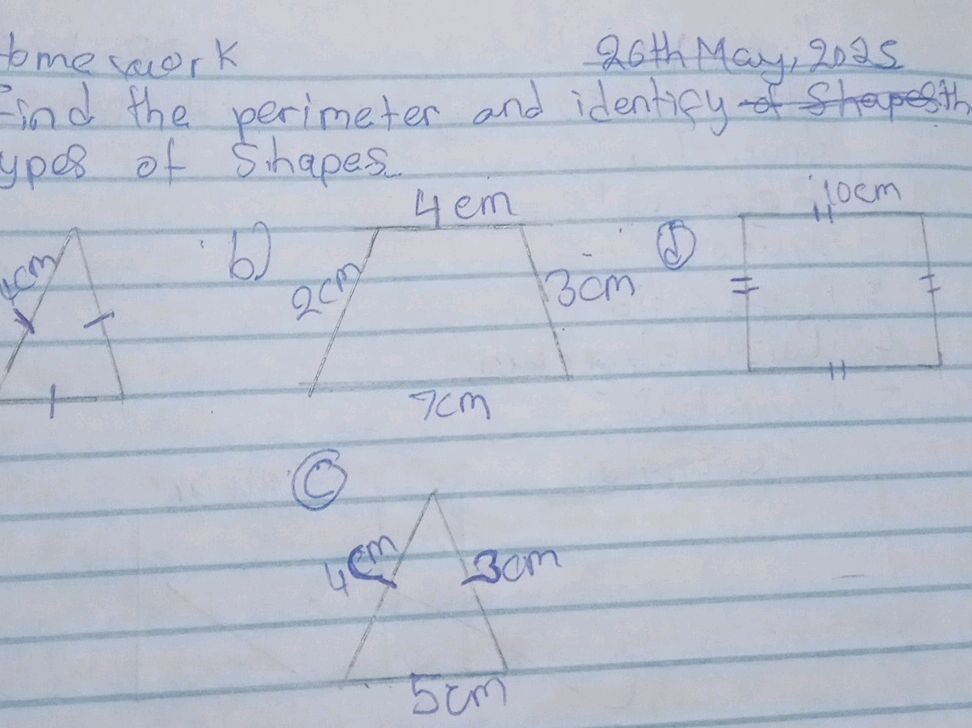 omework
26th May, 2025
Find the perimeter and identify of Shapes th
ypes of Shapes.
4cm
10cm
4cm
b)
2cm
3cm
d
7cm
C
4cm
3cm
5cm